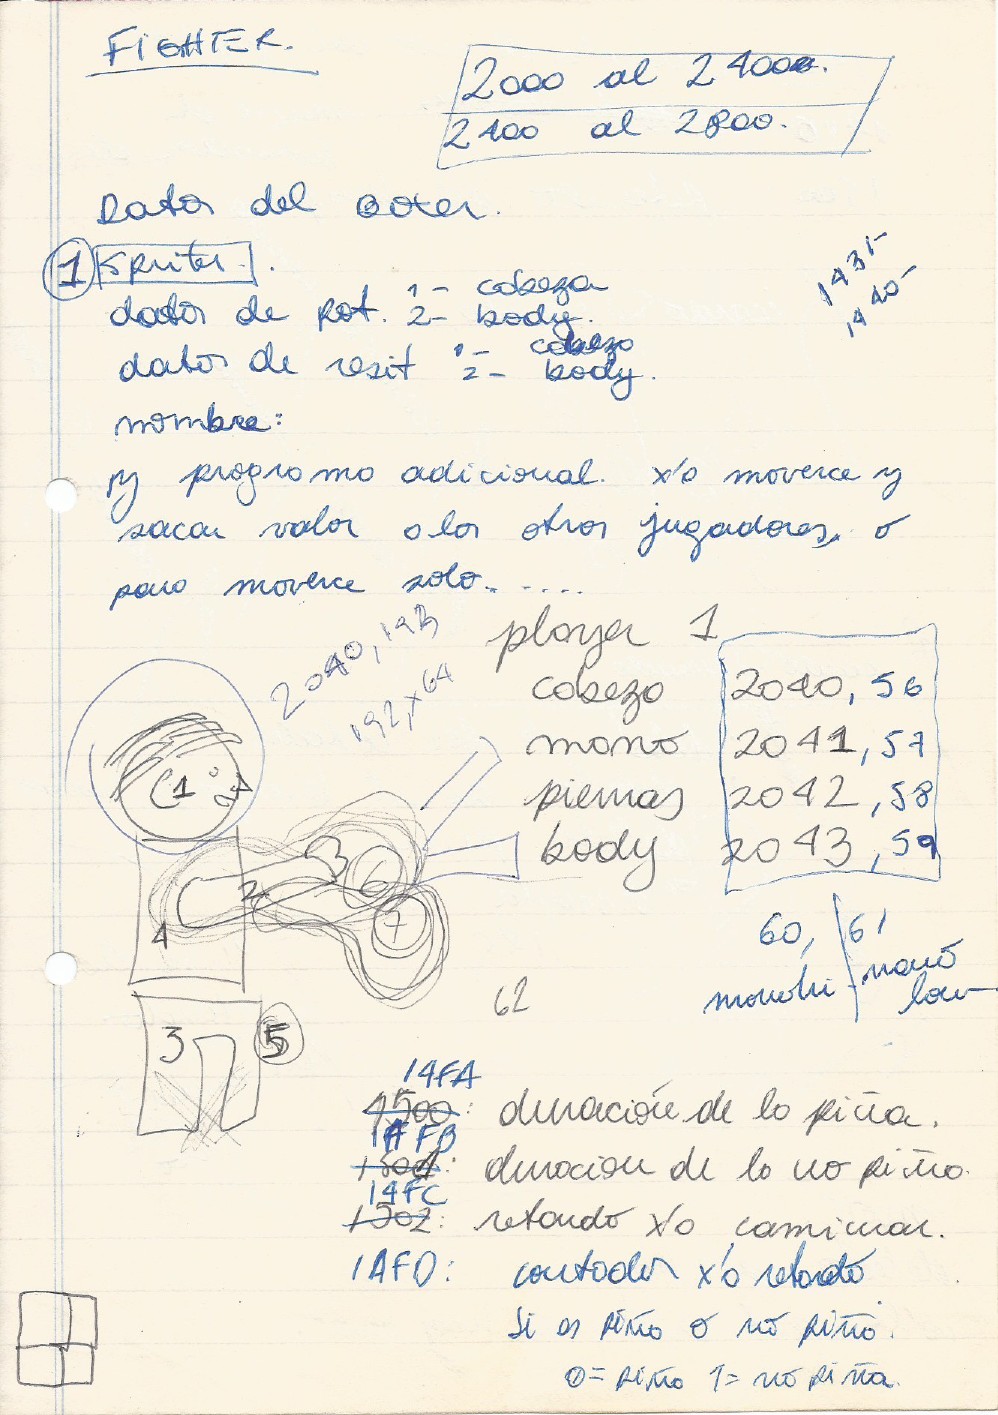 FIGHTER.
2000 al 2400.
2400 al 2800.
Datos del
1 Sprites.
datos de rot. 1- cabeza
2- body.
datos de resit 1- cabeza
2- body.
1435-
1440-
nombre:
y programa adicional. x'a moverce y
sacar valor a los otros jugadores, o
para moverce solo.....
2040,193
192,x64
player 1
cabeza 2040, 56
mano 2041, 57
piernas 2042, 58
body 2043, 59
1
2
3
4
6
7
3
5
60, 61
manohi mano
low
62
14FA
1500: duración de la piña.
14FB
1501: duracion de la no piña.
14FC
1502: retardo x'a caminar.
14FD: contador x'a retardo
si es piña o no piña.
0= piña 1= no piña.